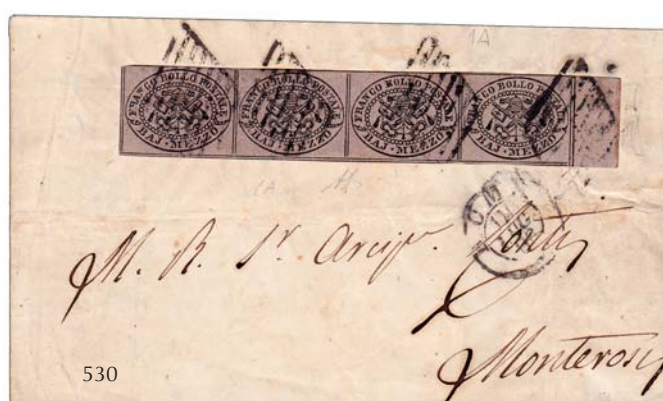 1A
FRANCO BOLLO POSTALE
BAJ · MEZZO
FRANCO BOLLO POSTALE
BAJ · MEZZO
FRANCO BOLLO POSTALE
BAJ · MEZZO
FRANCO BOLLO POSTALE
BAJ · MEZZO
1A
M. R. Sr Arcip.
Monterosi
530